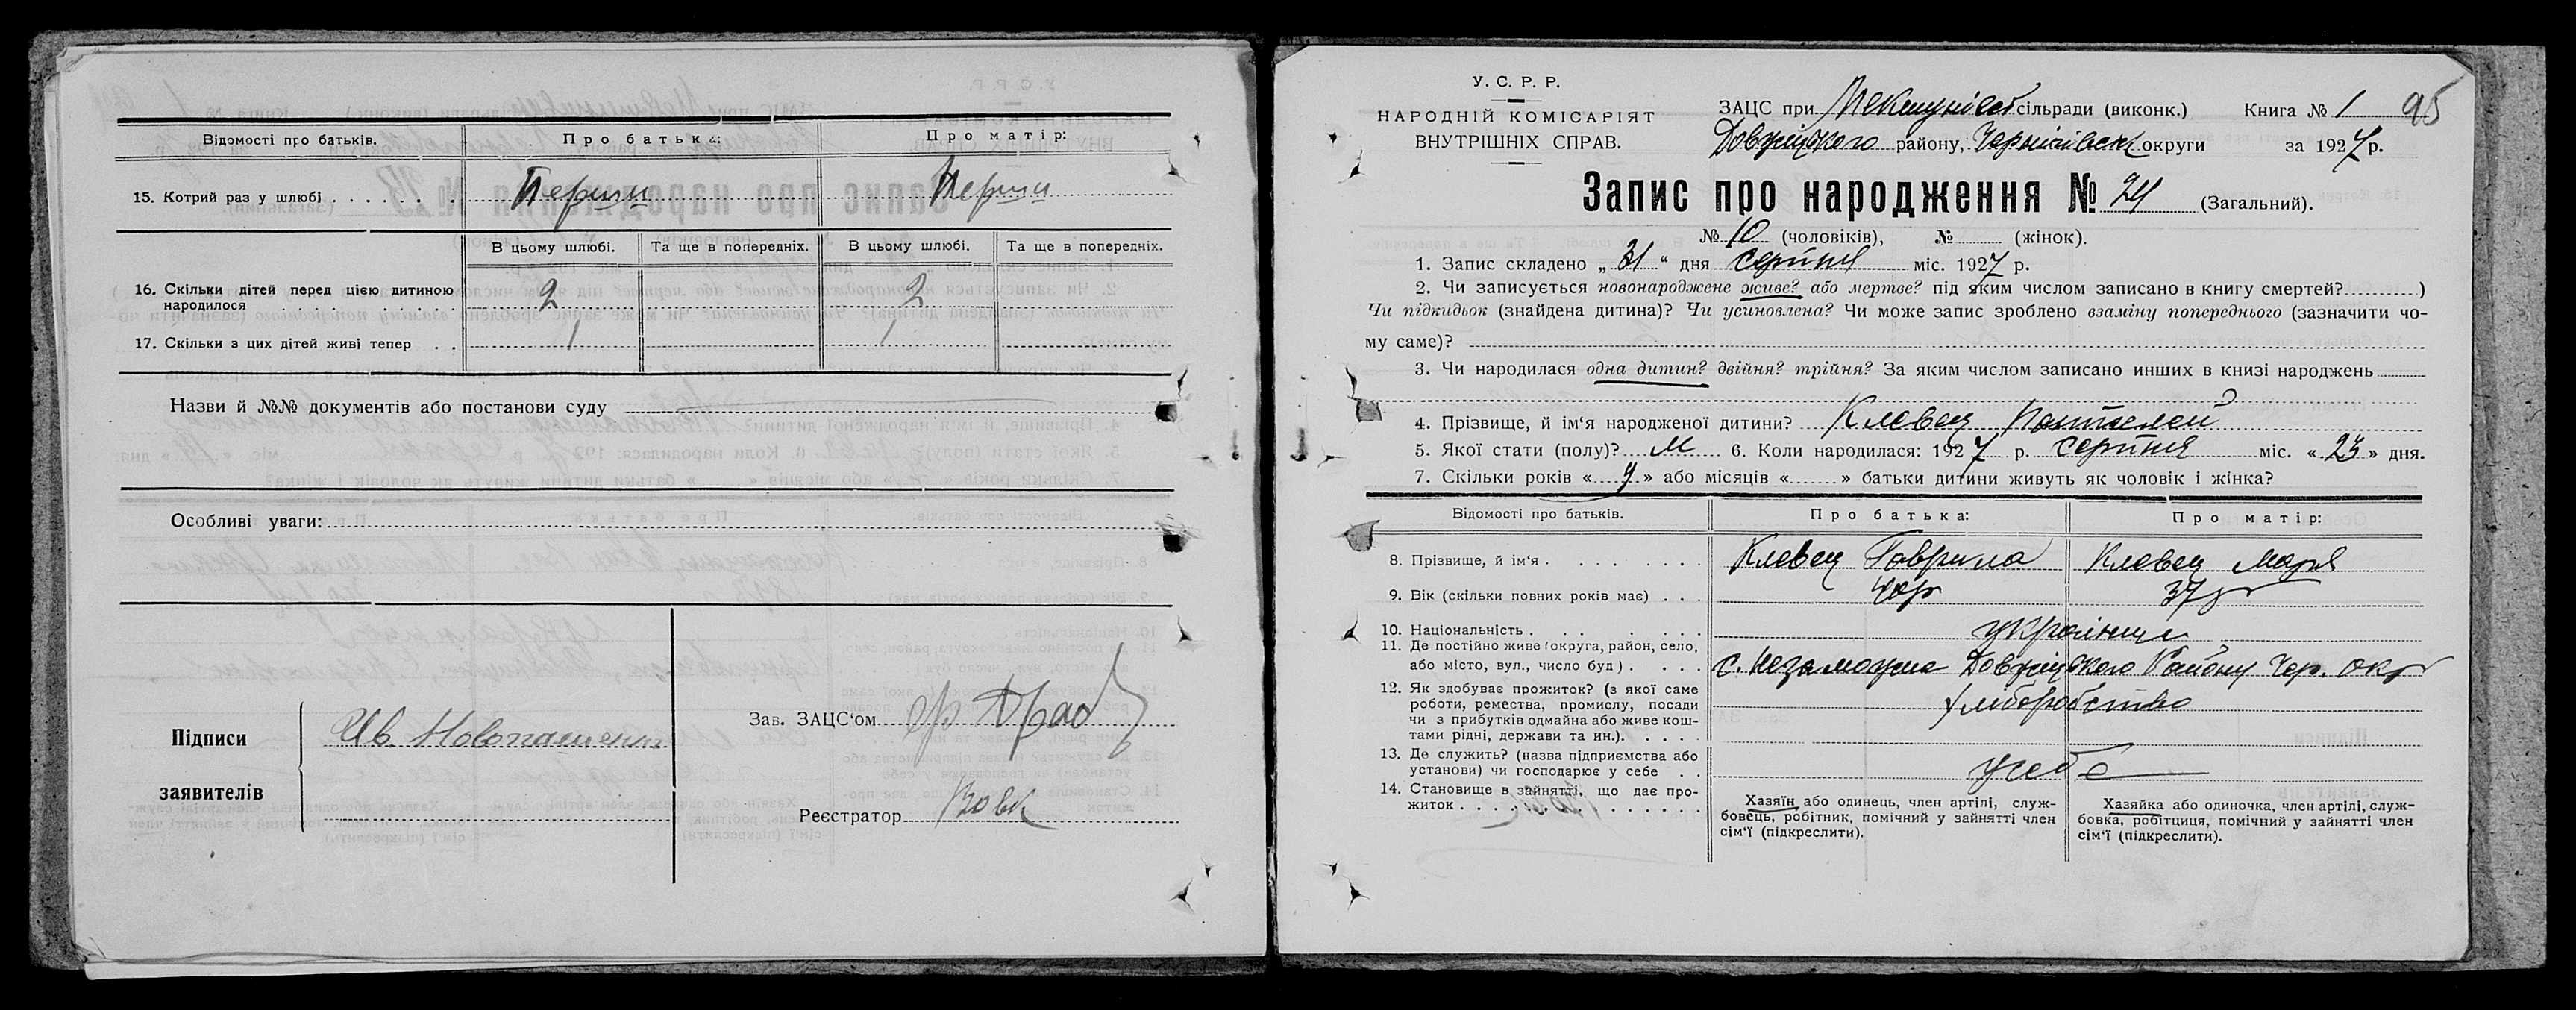 Відомості про батьків. Про батька: Про матір:
15. Котрий раз у шлюбі . . . . . . . Перши Перши
В цьому шлюбі. Та ще в попередніх. В цьому шлюбі. Та ще в попередніх.
16. Скільки дітей перед цією дитиною
народилося . . . . . . . . . 2 2
17. Скільки з цих дітей живі тепер . . 1 1
Назви й №№ документів або постанови суду
Особливі уваги:
Підписи
заявителів
Ив Новопашенн
Зав. ЗАЦС'ом
Реєстратор Вовк
У. С. Р. Р.
НАРОДНІЙ КОМІСАРІЯТ
ВНУТРІШНІХ СПРАВ.
ЗАЦС при сільради (виконк.) Книга № 1 95
Довжицького району, Чернігівськ округи за 1927 р.
Запис про народження № 24 (Загальний).
№ 10 (чоловіків), № (жінок).
1. Запис складено „ 31 “ дня серпня міс. 1927 р.
2. Чи записується новонароджене живе? або мертве? під яким числом записано в книгу смертей? )
Чи підкидьок (знайдена дитина)? Чи усиновлена? Чи може запис зроблено взаміну попереднього (зазначити чо-
му саме)?
3. Чи народилася одна дитин? двійня? трійня? За яким числом записано инших в книзі народжень
4. Прізвище, й ім'я народженої дитини? Клевец Пантелей
5. Якої стати (полу)? М 6. Коли народилася: 1927 р. серпня міс. « 23 » дня.
7. Скільки років « 4 » або місяців « » батьки дитини живуть як чоловік і жінка?
Відомості про батьків. Про батька: Про матір:
8. Прізвище, й ім'я . . . . . . . Клевец Гаврила Клевец Марія
9. Вік (скільки повних років має) . . . 40р 37р
10. Національність . . . . . . . українці
11. Де постійно живе (округа, район, село,
або місто, вул., число буд) . . . . с. Незаможне Довжицького Району Чер. окр
12. Як здобуває прожиток? (з якої саме
роботи, ремества, промислу, посади
чи з прибутків одмайна або живе кош-
тами рідні, держави та ин.). . . . . хліборобство
13. Де служить? (назва підприємства або
установи) чи господарює у себе . . у себе
14. Становище в зайнятті, що дає про-
житок . . . . . . . . . . . .
Хазяїн або одинець, член артілі, служ-
бовець, робітник, помічний у зайнятті член
сім'ї (підкреслити).
Хазяйка або одиночка, член артілі, служ-
бовка, робітциця, помічний у зайнятті член
сім'ї (підкреслити).